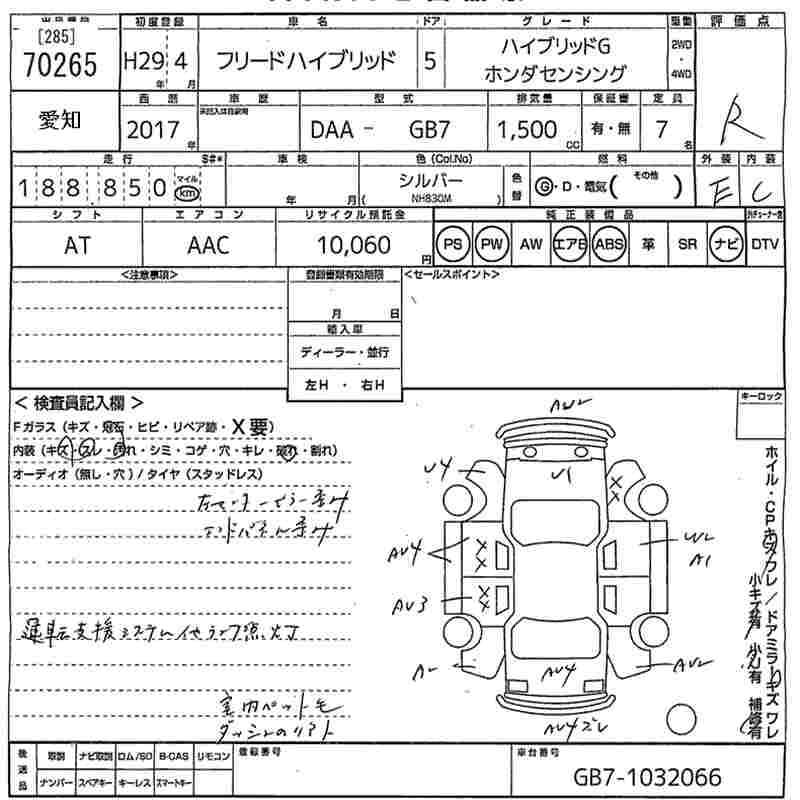 [285]
初度登録 車名 ドア グレード 駆動 評価点
70265 H29 4 年 月 フリードハイブリッド 5 ハイブリッドG ホンダセンシング 2WD・4WD
愛知 西暦 車歴 型式 排気量 保証書 定員 R
2017 年 DAA - GB7 1,500 CC 有・無 7 名
走行 S#* 車検 色 (Col.No) 色替 燃料 外装 内装
188850 マイル km 年 月 シルバー ( NH830M ) G・D・電気 ( その他 ) E C
シフト エアコン リサイクル預託金 純正装備品
AT AAC 10,060 円 PS PW AW エアB ABS 革 SR ナビ DTV
<注意事項> 登録書類有効期限 <セールスポイント>
月 日
輸入車
ディーラー・並行
左H ・ 右H
< 検査員記入欄 > キーロック
Fガラス (キズ・飛石・ヒビ・リペア跡・X要)
内装 (キズ・スレ・汚れ・シミ・コゲ・穴・キレ・破れ・割れ)
オーディオ (無し・穴) / タイヤ (スタッドレス)
運転支援システム他ランプ点灯
AW2
U4 U1
AU4 W2 A1
AU3
A2 AU4 AU2
AU4 ズレ
ホイル・CPキズワレ / ドアミラーキズワレ
小キズ有 小凹有 補修有
後送品 取説 ナビ取説 ロム/SD B-CAS リモコン 登録番号 車台番号
ナンバー スペアキー キーレス スマートキー GB7-1032066